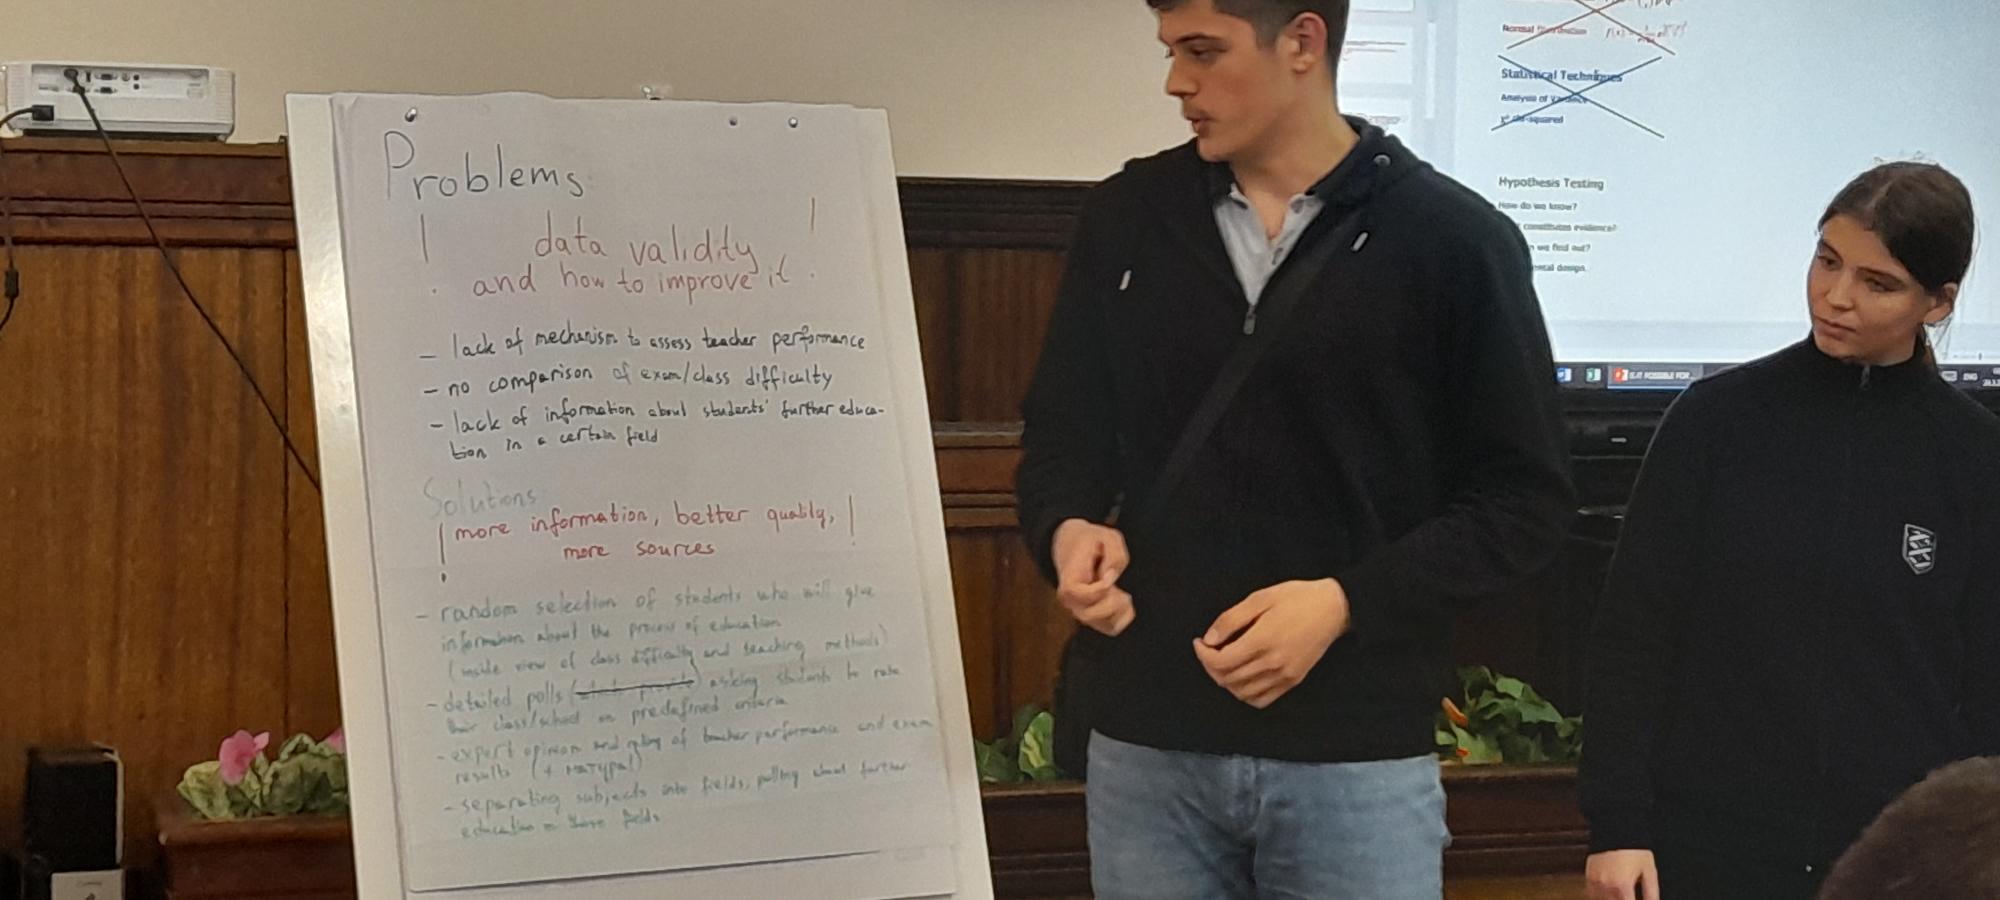 Problems
! data validity !
and how to improve it
- lack of mechanism to assess teacher performance
- no comparison of exam/class difficulty
- lack of information about students' further educa-
tion in a certain field
Solutions
! more information, better quality, !
more sources
- random selection of students who will give
information about the process of education
(inside view of class difficulty and teaching methods)
- detailed polls ( ) asking students to rate
their class/school on predefined criteria
- expert opinion and rating of teacher performance and exam
results (+ матура)
- separating subjects into fields, polling about further
education in those fields
Normal
Statistical Techniques
Analysis of Variance
X² chi-squared
Hypothesis Testing
How do we know?
constitutes evidence?
we find out?
design.
IS IT POSSIBLE FOR
ENG